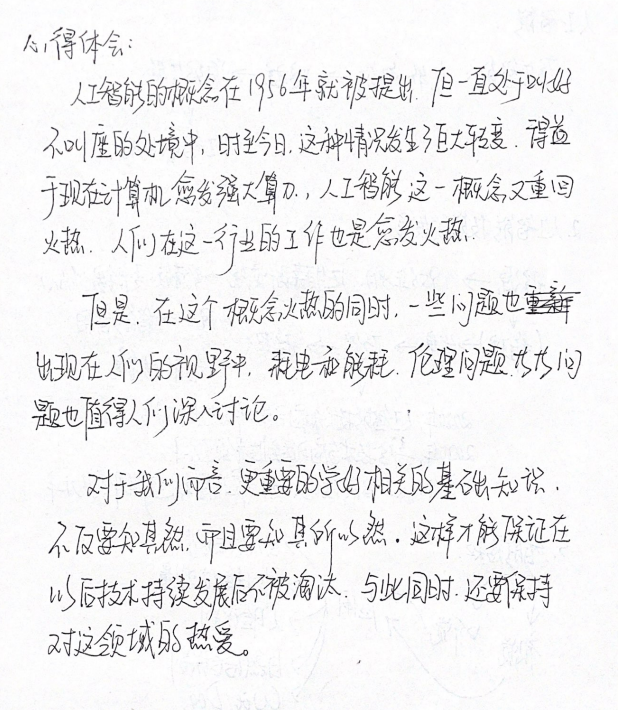 心得体会:
人工智能的概念在1956年就被提出.但一直处于叫好
不叫座的处境中,时至今日.这种情况发生了巨大转变.得益
于现在计算机愈发强大算力,人工智能这一概念又重回
火热.人们在这一行业的工作也是愈发火热.
但是.在这个概念火热的同时.一些问题也重新
出现在人们的视野中,耗电和能耗.伦理问题.等等问
题也值得人们深入讨论。
对于我们而言.更重要的学好相关的基础知识.
不仅要知其然.而且要知其所以然.这样才能保证在
以后技术持续发展后不被淘汰.与此同时.还要保持
对这领域的热爱。